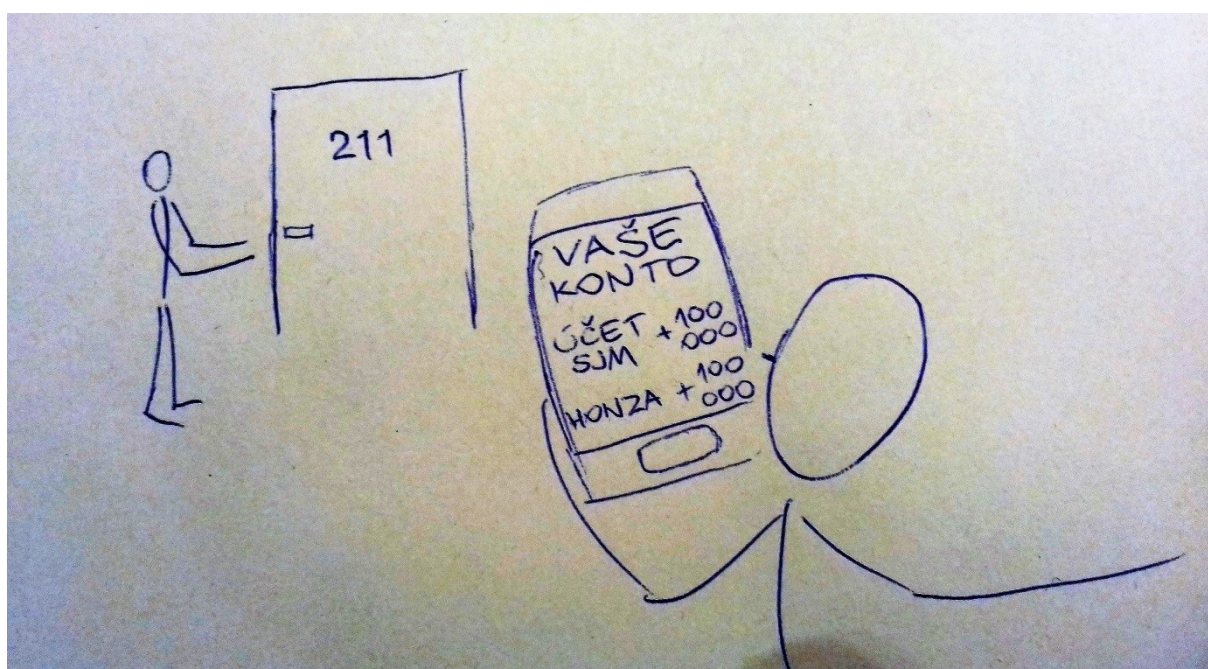 211
VAŠE
KONTO
ÚČET + 100
SJM 000
HONZA + 100
000